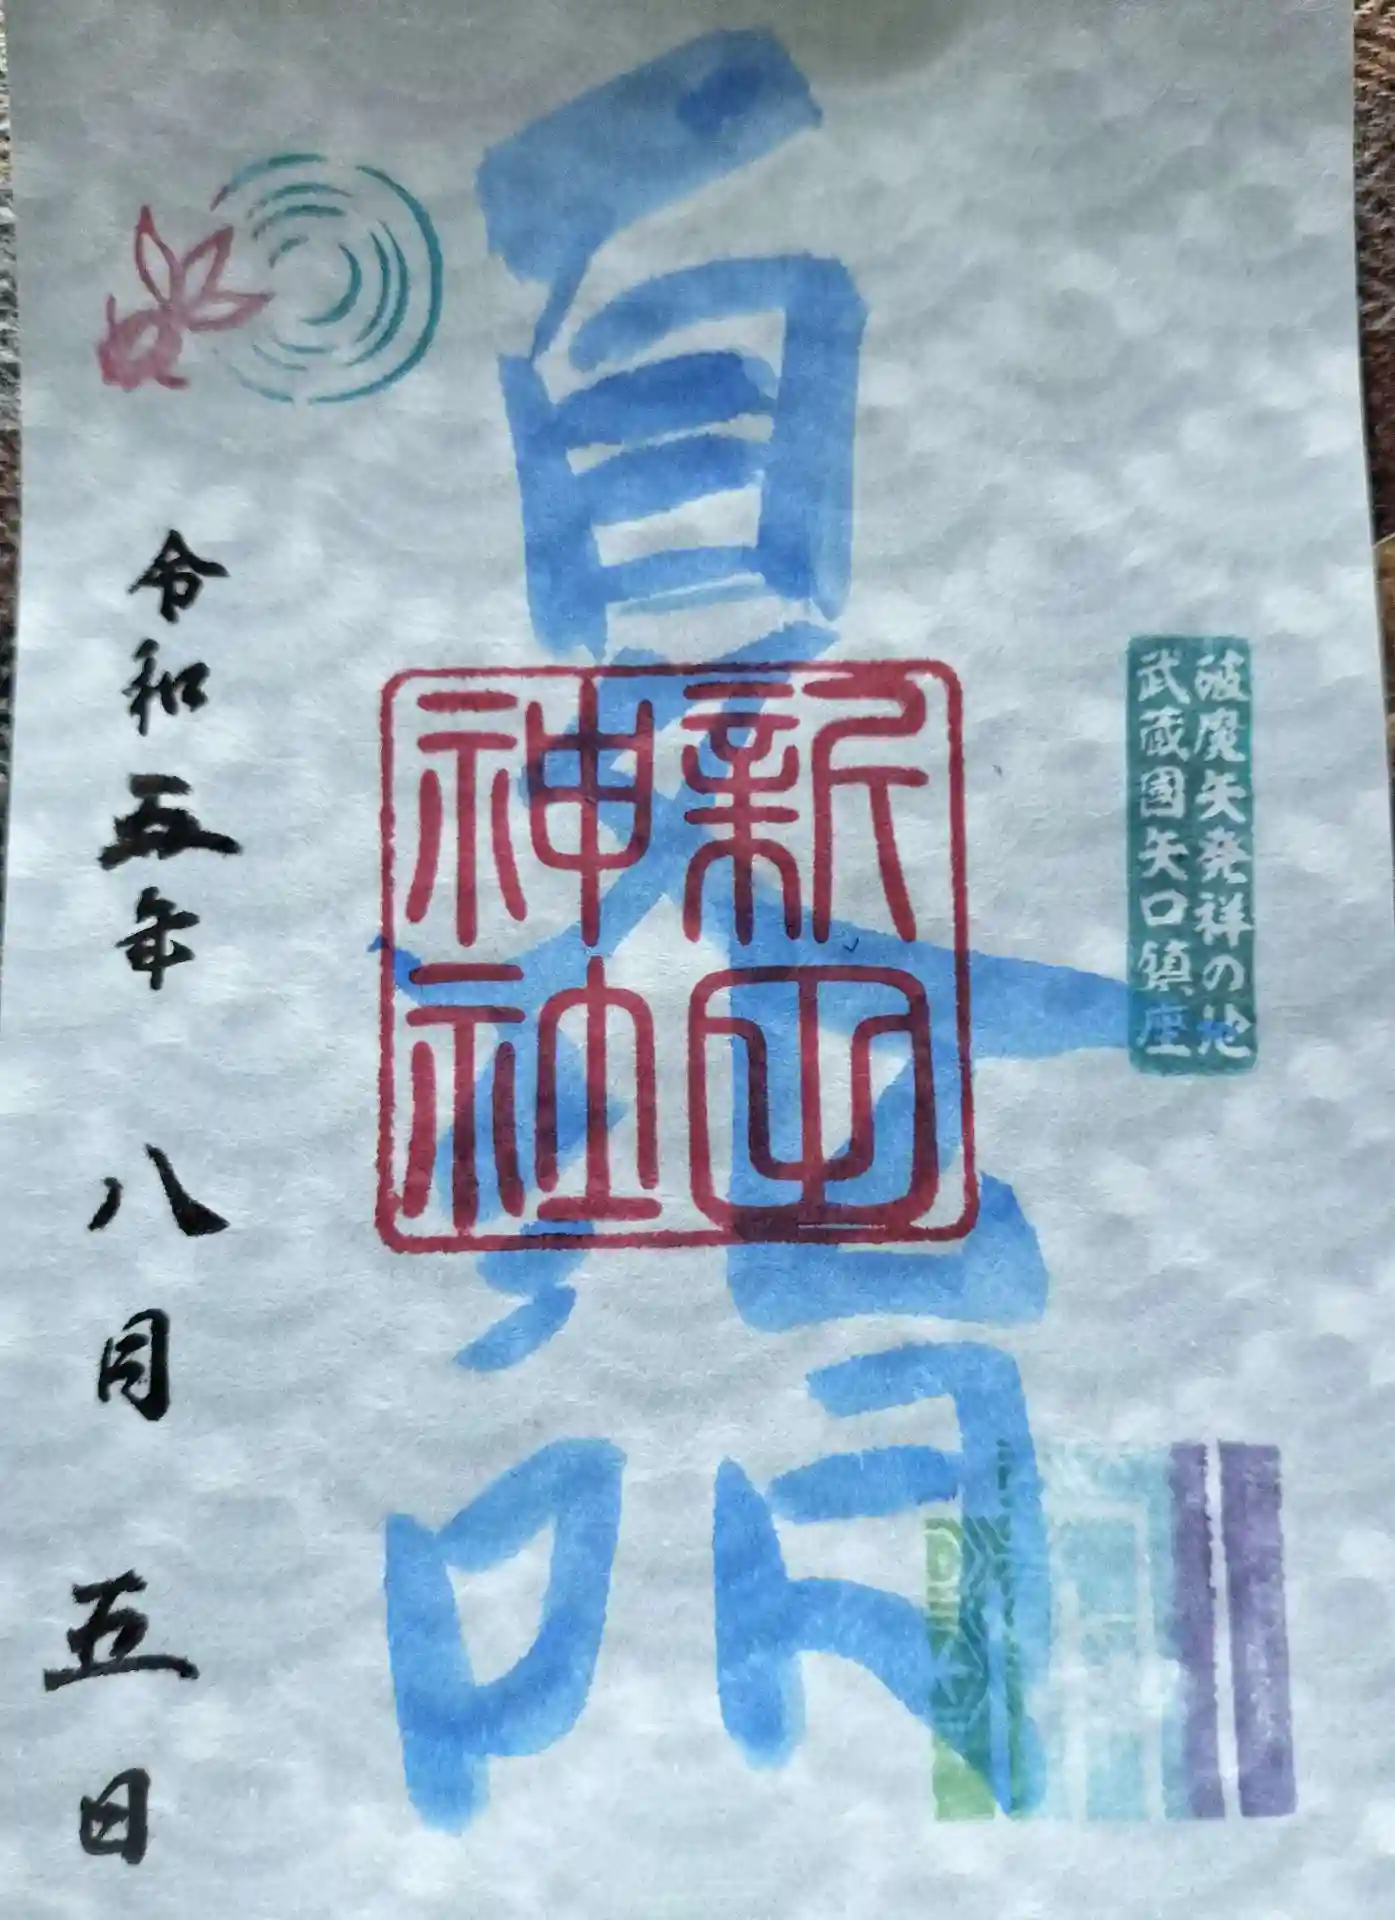 破魔矢発祥の地
武蔵國矢口鎮座
夏詣
新田
神社
令和五年八月五日